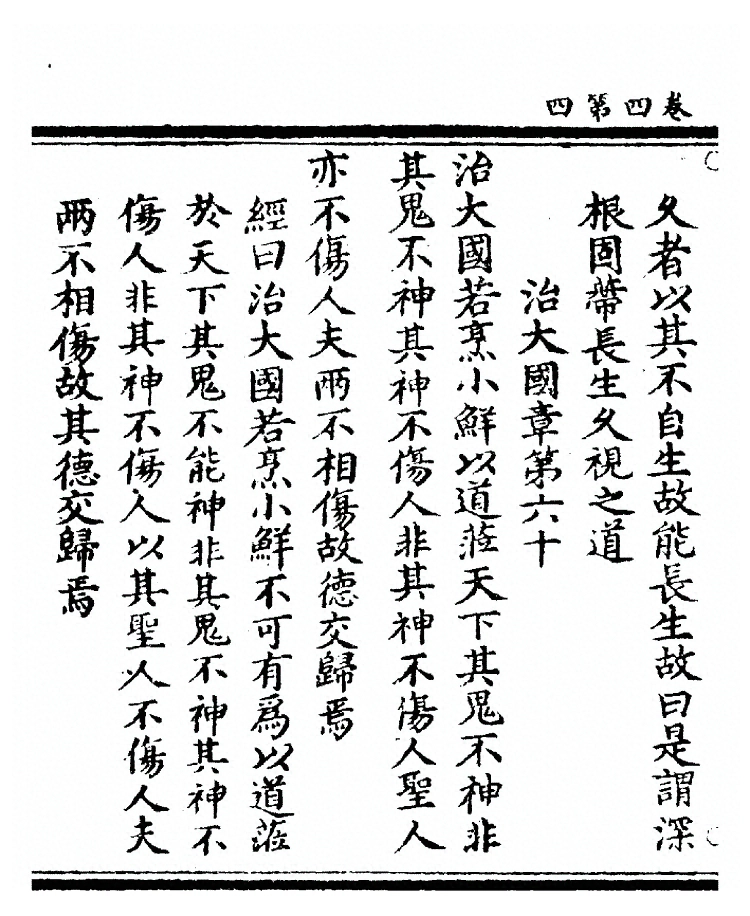 卷四第四
久者以其不自生故能長生故曰是謂深
根固蔕長生久視之道
治大國章第六十
治大國若烹小鮮以道蒞天下其鬼不神非
其鬼不神其神不傷人非其神不傷人聖人
亦不傷人夫兩不相傷故德交歸焉
經曰治大國若烹小鮮不可有爲以道蒞
於天下其鬼不能神非其鬼不神其神不
傷人非其神不傷人以其聖人不傷人夫
兩不相傷故其德交歸焉